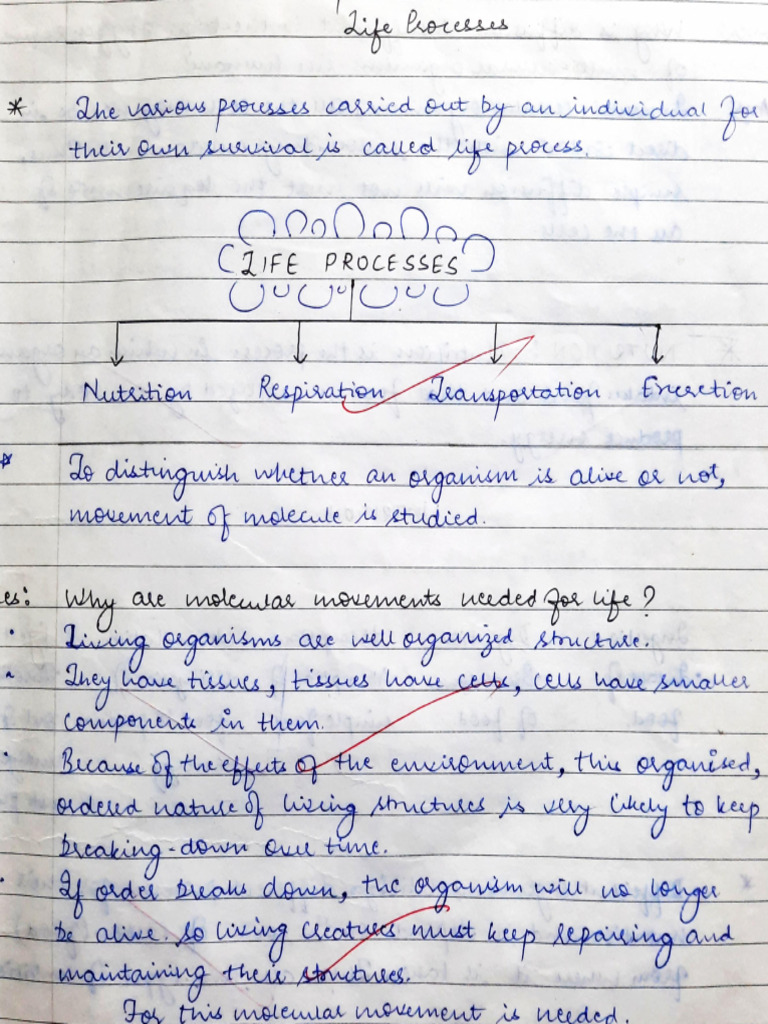 Life Processes
* The various processes carried out by an individual for
their own survival is called life process.
LIFE PROCESSES
Nutrition Respiration Transportation Excretion
* To distinguish whether an organism is alive or not,
movement of molecule is studied.
es: Why are molecular movements needed for life?
• Living organisms are well organized structure.
• They have tissues, tissues have cells, cells have smaller
components in them.
• Because of the effects of the environment, this organised,
ordered nature of living structures is very likely to keep
breaking-down over time.
• If order breaks down, the organism will no longer
be alive. so living creatures must keep repairing and
maintaining their structures.
For this molecular movement is needed.